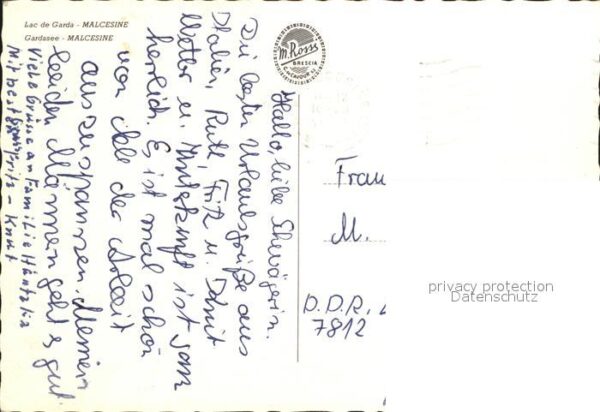 Lac de Garda - MALCESINE
Gardasee - MALCESINE
M. Rossi
BRESCIA
Hallo, liebe Schwägerin.
Die besten Urlaubsgrüße aus
Italien, Ruth, Fritz u. Knut
Wetter u. Unterkunft ist ganz
herrlich. Es ist mal schön
von all der Arbeit
auszuspannen. Meinen
beiden Männern geht es gut
Viele Grüsse an Familie
Mit best Fritz - Knut
Frau
M.
D.D.R.
7812
privacy protection
Datenschutz